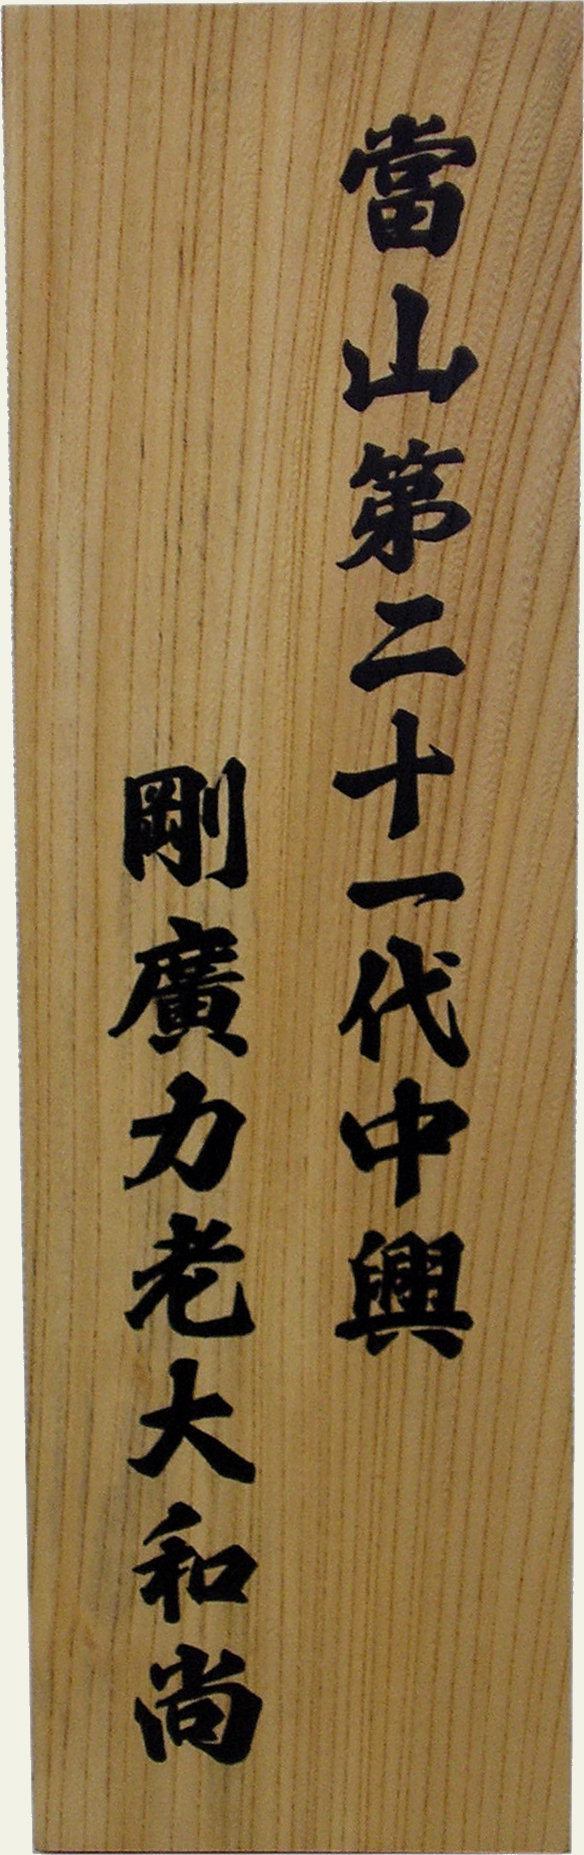 當山第二十一代中興
剛廣力老大和尚